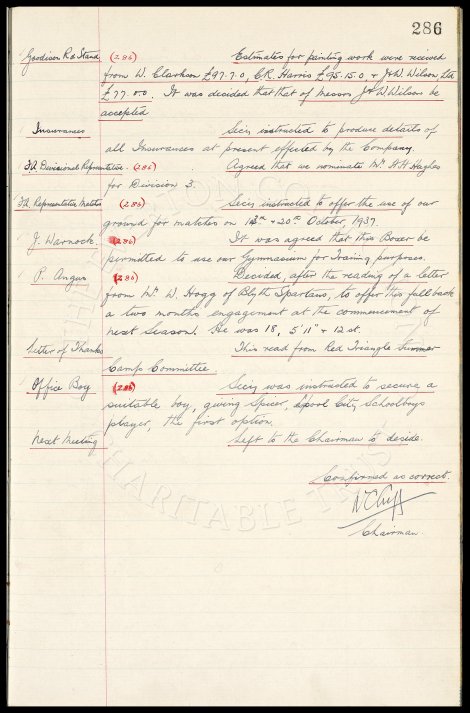 286
Goodison Rd Stand (286) Estimates for painting work were received
from W. Clarkson £97.7.0, C.R. Harris £95.15.0, & J & W. Wilson Ltd
£77.0.0. It was decided that that of messrs J & W Wilson be
accepted
Insurances Secy instructed to produce details of
all Insurances at present effected by the Company.
F.A. Divisional Representative. (286) Agreed that we nominate Mr H.H. Hughes
for Division 3.
F.A. Representative Matches (286) Secy instructed to offer the use of our
ground for matches on & 20th October, 1937.
J. Warnock. (286) It was agreed that this Boxer be
permitted to use our Gymnasium for Training purposes.
P. Angus (286) Decided, after the reading of a letter
from Mr W. Hogg of Blyth Spartans, to offer this full back
a two months engagement at the commencement of
next Season. He was 18, 5'11" & 12 st.
Letter of Thanks This read from Red Triangle Summer
Camp Committee
Office Boy (286) Secy was instructed to secure a
suitable boy, giving Spicer, L'pool City Schoolboys
player, the first option.
Next Meeting Left to the Chairman to decide.
Confirmed as correct.
W C Cuff
Chairman.
THE EVERTON COLLECTION
CHARITABLE TRUST